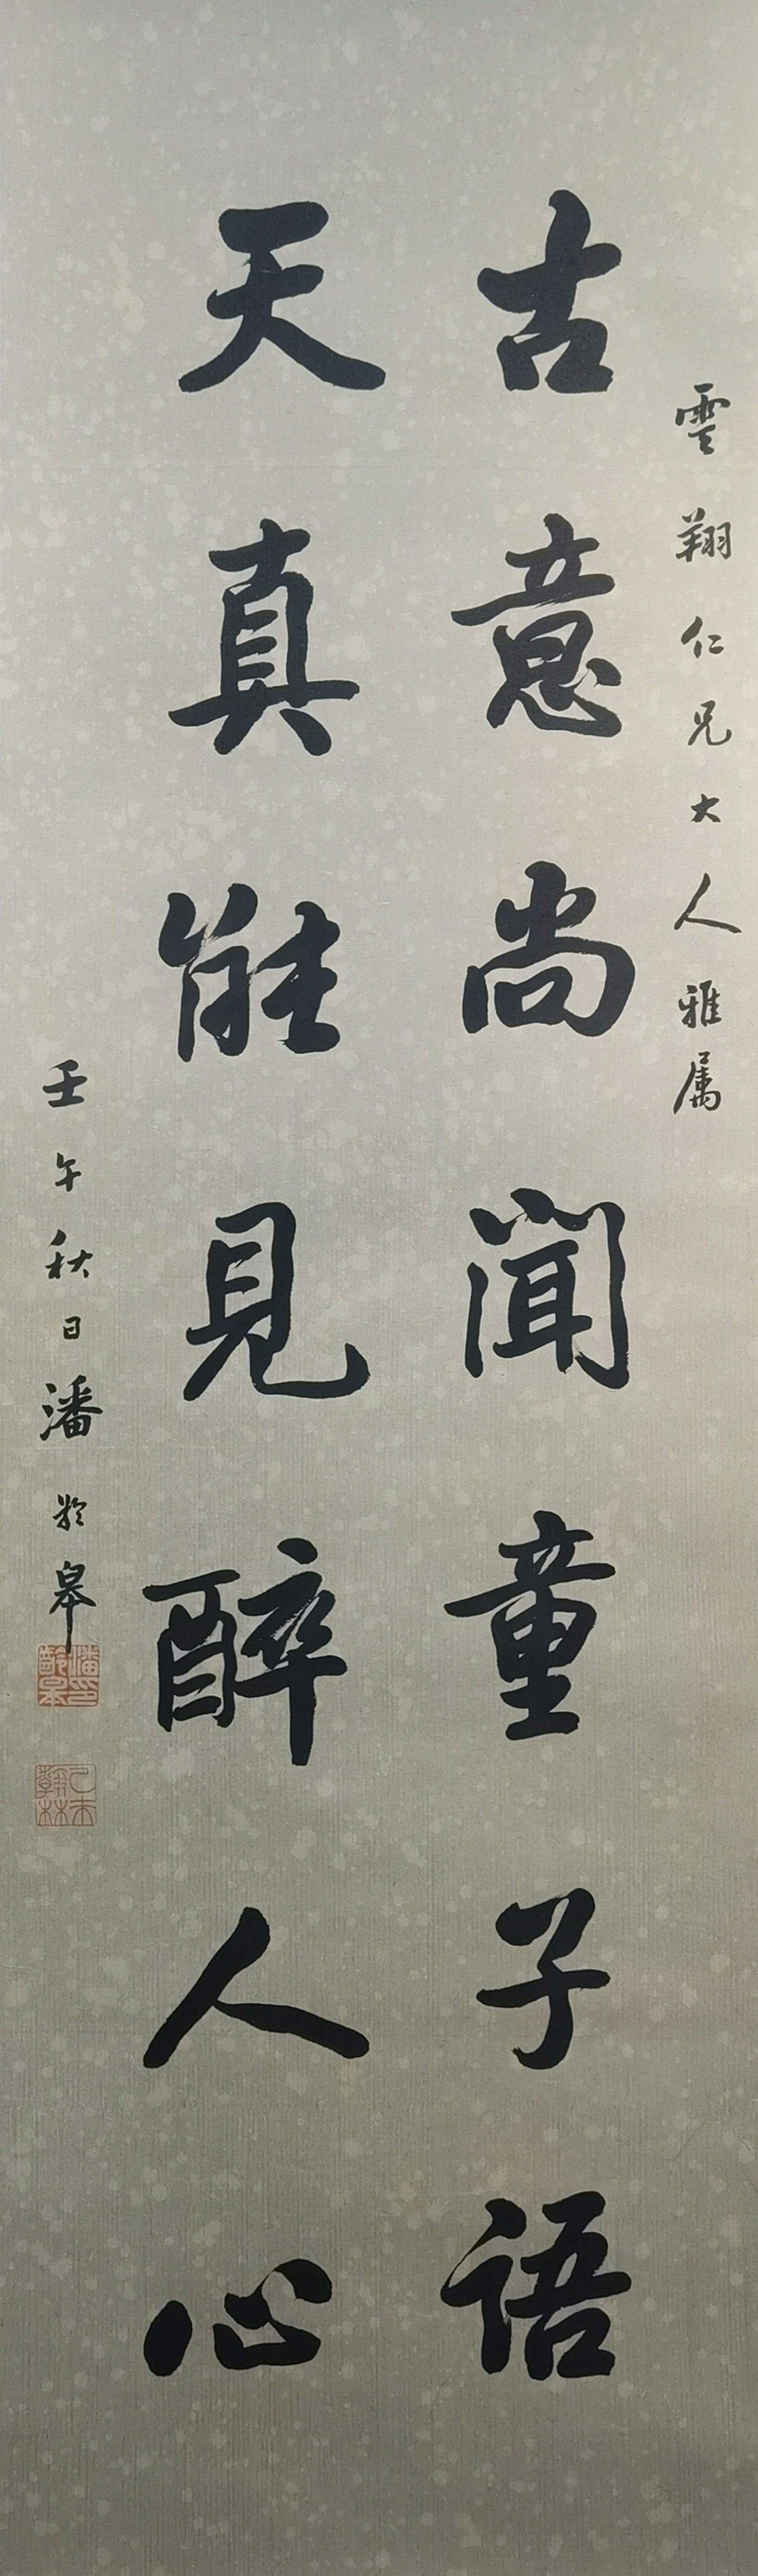 雲翔仁兄大人雅属
古意尚聞童子語
天真能見醉人心
壬午秋日潘齡皋
潘印齡皋
己未翰林